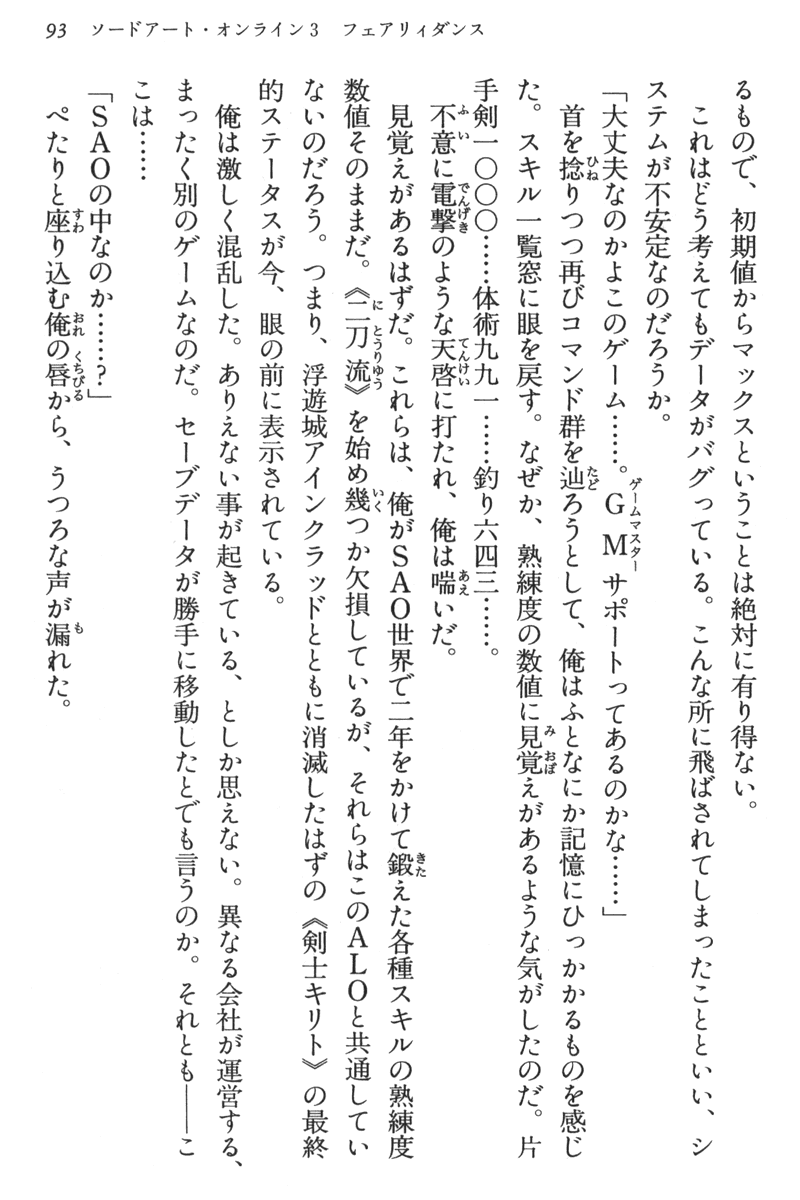 93　ソードアート・オンライン3　フェアリィダンス
るもので、初期値からマックスということは絶対に有り得ない。
　これはどう考えてもデータがバグっている。こんな所に飛ばされてしまったことといい、シ
ステムが不安定なのだろうか。
「大丈夫なのかよこのゲーム……。ＧＭサポートってあるのかな……」
　首を捻りつつ再びコマンド群を辿ろうとして、俺はふとなにか記憶にひっかかるものを感じ
た。スキル一覧窓に眼を戻す。なぜか、熟練度の数値に見覚えがあるような気がしたのだ。片
手剣一〇〇〇……体術九九一……釣り六四三……。
　不意に電撃のような天啓に打たれ、俺は喘いだ。
　見覚えがあるはずだ。これらは、俺がＳＡＯ世界で二年をかけて鍛えた各種スキルの熟練度
数値そのままだ。《二刀流》を始め幾つか欠損しているが、それらはこのＡＬＯと共通してい
ないのだろう。つまり、浮遊城アインクラッドとともに消滅したはずの《剣士キリト》の最終
的ステータスが今、眼の前に表示されている。
　俺は激しく混乱した。ありえない事が起きている、としか思えない。異なる会社が運営する、
まったく別のゲームなのだ。セーブデータが勝手に移動したとでも言うのか。それとも――こ
こは……
「ＳＡＯの中なのか……？」
　ぺたりと座り込む俺の唇から、うつろな声が漏れた。